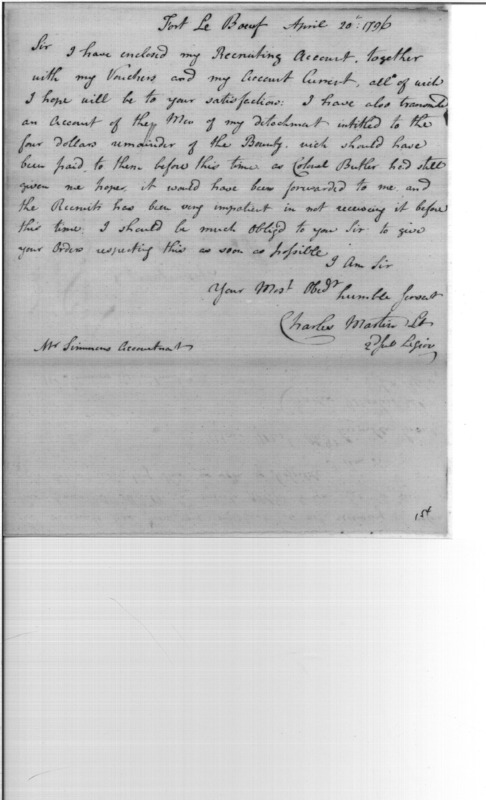 Fort Le Boeuf April 20th 1796
Sir I have enclosed my Recruiting Account, together
with my Vouchers and my Account Current, all of wich
I hope will be to your satisfaction: I have also
an Account of they Men of my detachment intitled to the
four dollars remainder of the Bounty. wich should have
been paid to them before this time as Colonal Butler had still
given me hopes it would have been forwarded to me. and
the Recruits has been very impatient in not receiving it before
this time. I should be much Obligd to you Sir to give
your Orders respecting this as soon as possible
I Am Sir
Your Most Obedt humble Servant
Charles Martin Lt
2d Sub Legion
Mr Simmons Accountant
1st